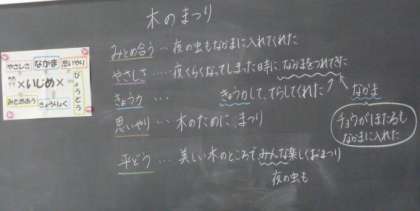 木のまつり
やさしさ なかま 思いやり
×いじめ×
びょうどう
みとめあう きょうりょく
みとめ合う…夜の虫もなかまに入れてくれた
やさしさ…夜くらくなってしまった時になかまをつれてきた
きょう力…きょう力して、てらしてくれた なかま
思いやり…木のために、まつり
チョウがほたるも
なかまに入れた
平どう…美しい木のところでみんな楽しくおまつり
夜の虫も